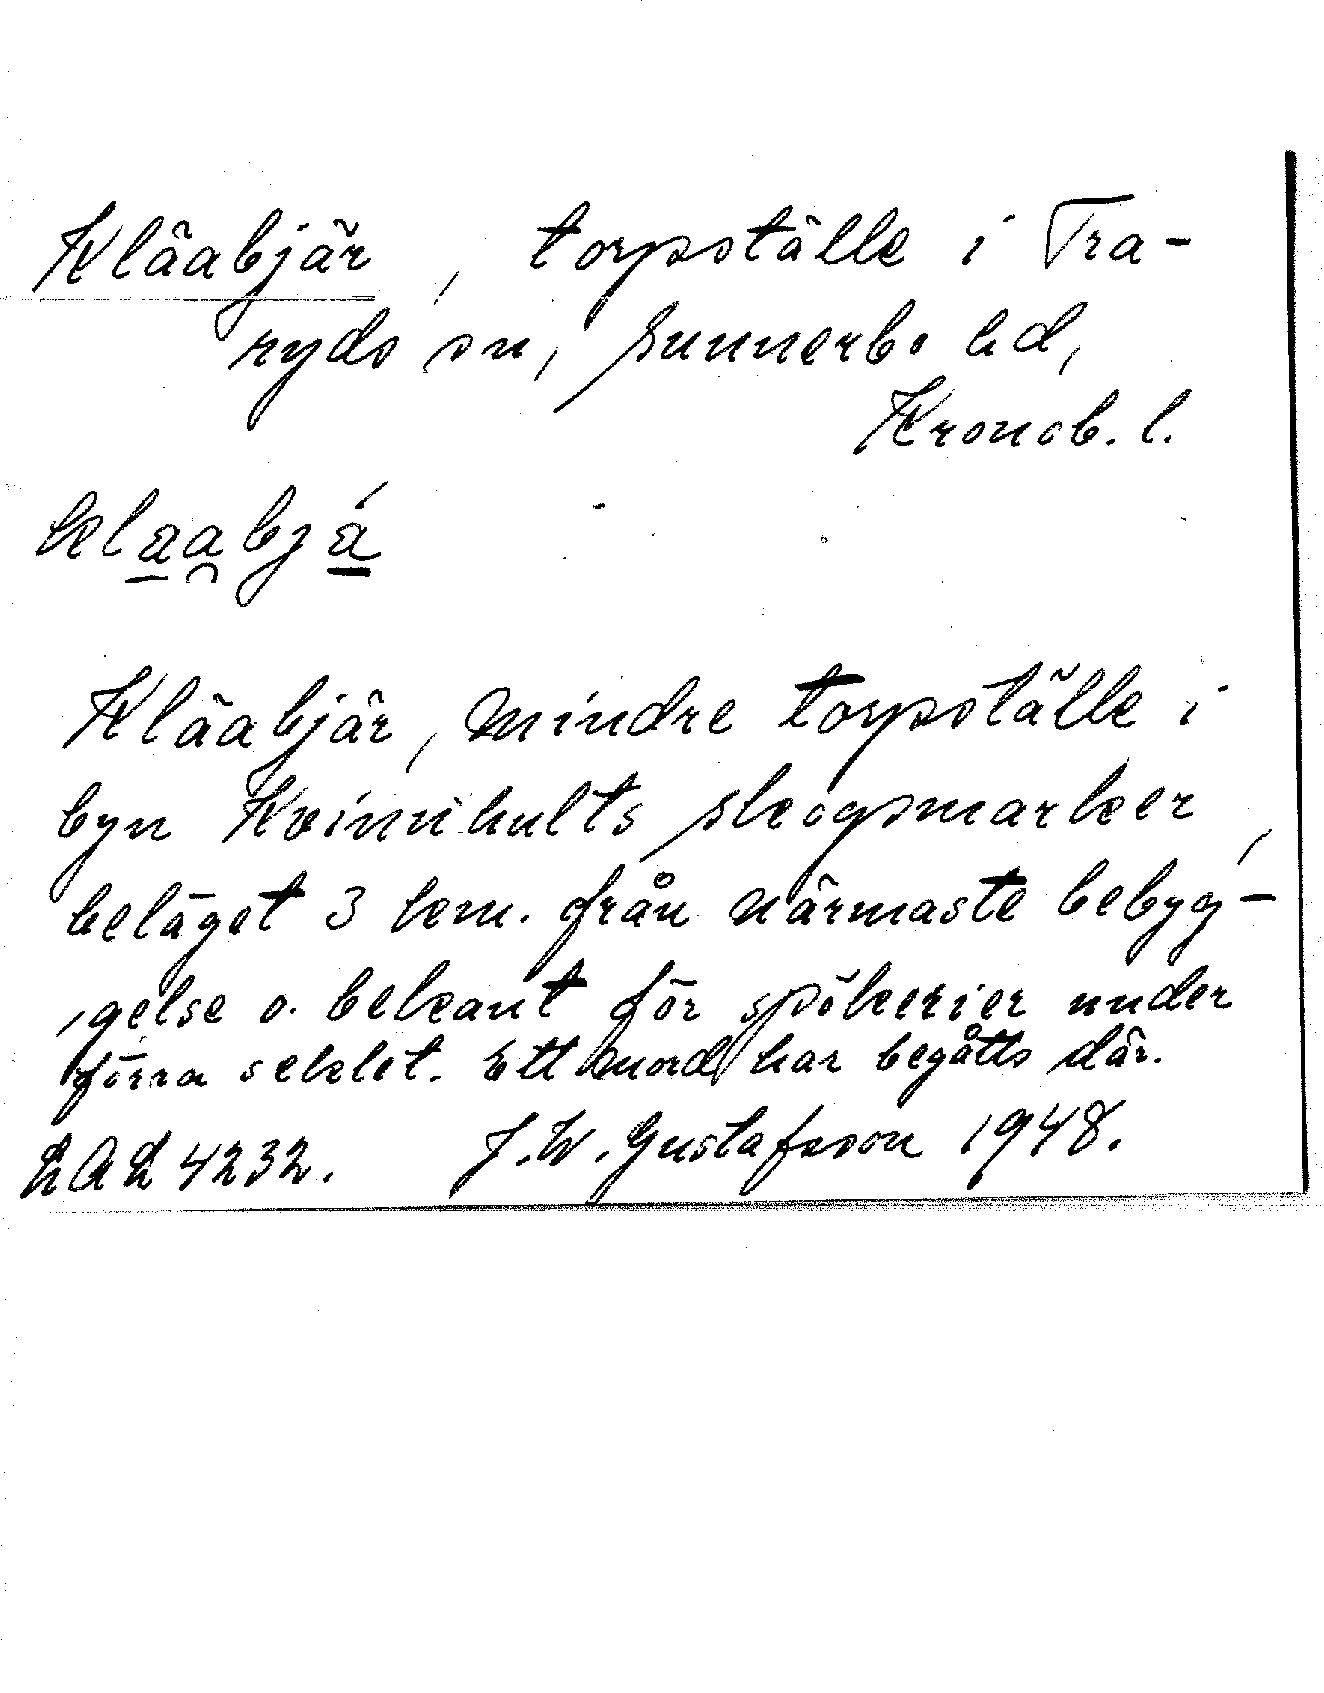 Kläabjär, torpställe i Tra-
ryds sn, Sunnerbo hd,
Kronob. l.
klaabjá
Kläabjär, mindre torpställe i
byn Kvinnhults skogsmarker,
beläget 3 km. från närmaste bebyg-
gelse o. bekant för spökerier under
förra seklet. Ett mord har begåtts där.
LAL 4232. J. W. Gustafsson 1948.